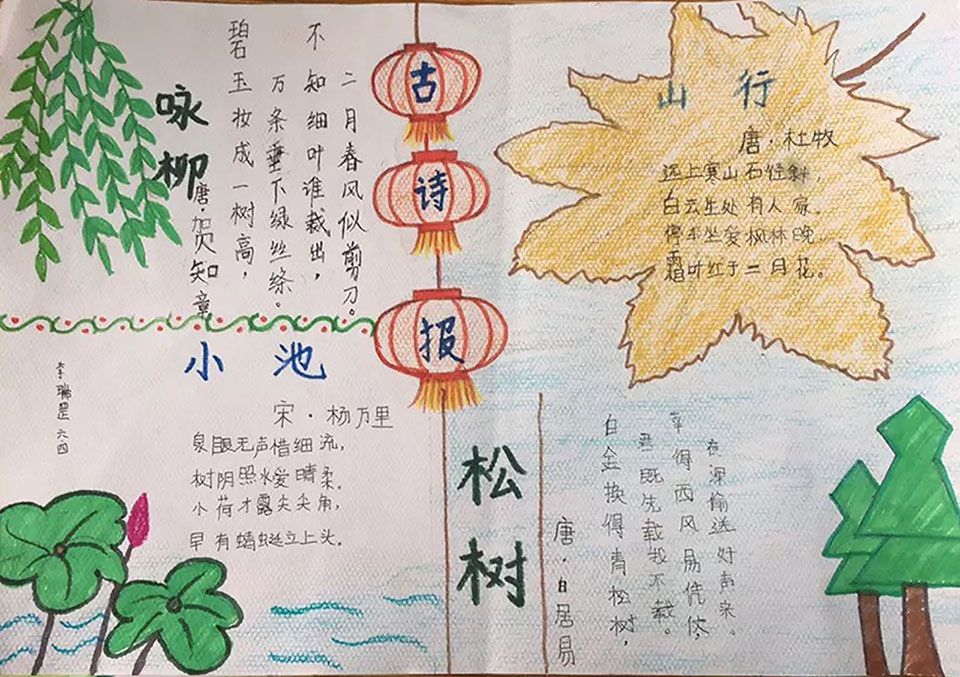 古
诗
报
咏柳
唐·贺知章
碧玉妆成一树高，
万条垂下绿丝绦。
不知细叶谁裁出，
二月春风似剪刀。
山行
唐·杜牧
远上寒山石径斜，
白云生处有人家。
停车坐爱枫林晚，
霜叶红于二月花。
小池
宋·杨万里
泉眼无声惜细流，
树阴照水爱晴柔。
小荷才露尖尖角，
早有蜻蜓立上头。
李瑞 六四
松树
唐·白居易
白金换得青松树，
君既先载我不载。
幸得西风易凭
夜深偷送好声来。